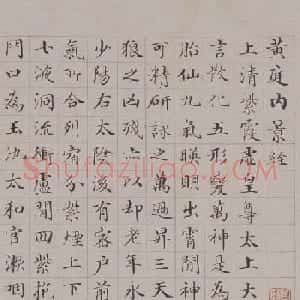 黃庭內景經
上清紫霞虛皇尊太上大
言散化五形變萬神
胎仙九氣映明出霄間神
可精研詠之萬過昇三天
狼之凶殘亦以却老年永
少陽右太陰後有密戶前
氣所合列宿分紫煙上下
七液洞流衝廬間四紫抱
門口為玉池太和官漱咽
Shufaziliao.com